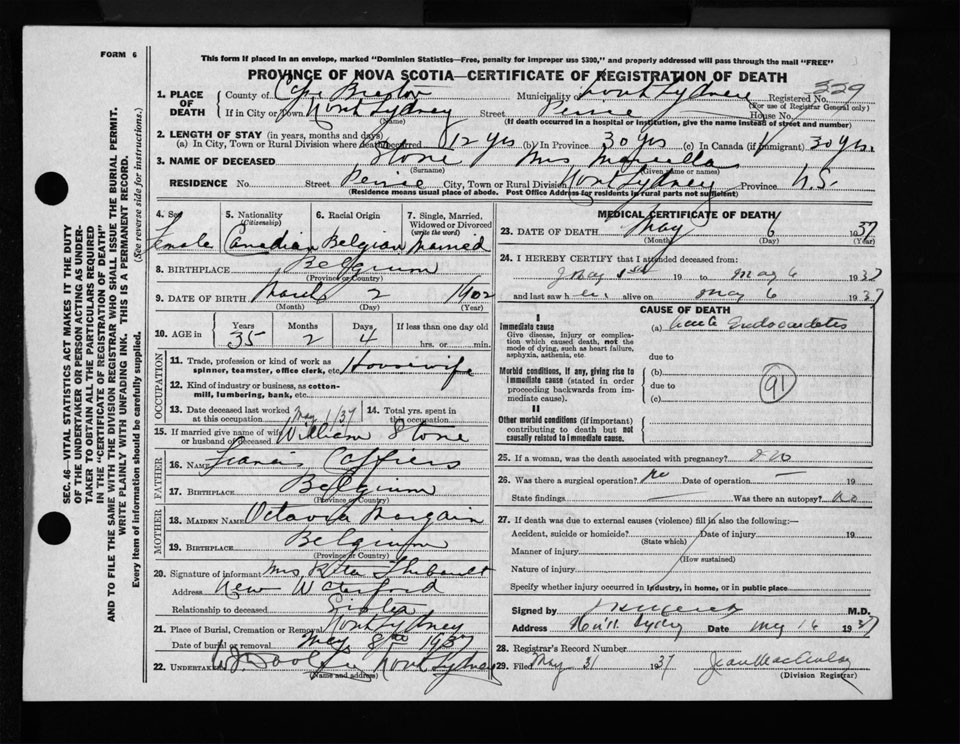 FORM 6
This form if placed in an envelope, marked "Dominion Statistics—Free, penalty for improper use $300," and properly addressed will pass through the mail "FREE"
PROVINCE OF NOVA SCOTIA—CERTIFICATE OF REGISTRATION OF DEATH
SEC. 46 VITAL STATISTICS ACT MAKES IT THE DUTY
OF THE UNDERTAKER OR PERSON ACTING AS UNDER-
TAKER TO OBTAIN ALL THE PARTICULARS REQUIRED
IN THE "CERTIFICATE OF REGISTRATION OF DEATH"
AND TO FILE THE SAME WITH THE DIVISION REGISTRAR WHO SHALL ISSUE THE BURIAL PERMIT.
WRITE PLAINLY WITH UNFADING INK. THIS IS A PERMANENT RECORD.
Every item of information should be carefully supplied. (See reverse side for instructions.)
1. PLACE OF DEATH County of Cape Breton Municipality North Sydney Registered No. 329
(For use of Registrar General only)
If in City or Town North Sydney Street Peirie House No.
(Name) (If death occurred in a hospital or institution, give the name instead of street and number)
2. LENGTH OF STAY (in years, months and days)
(a) In City, Town or Rural Division where death occurred 12 yrs (b) In Province 30 yrs (c) In Canada (if immigrant) 30 yrs.
3. NAME OF DECEASED Stone Mrs
(Surname) (Given name or names)
RESIDENCE No. Street Peirie City, Town or Rural Division North Sydney Province N.S.
(Residence means usual place of abode. Post Office Address for residents in rural parts not sufficient)
4. Sex Female
5. Nationality (Citizenship) Canadian
6. Racial Origin Belgian
7. Single, Married, Widowed or Divorced (write the word) Married
8. BIRTHPLACE Belgium
(Province or Country)
9. DATE OF BIRTH March 2 1902
(Month) (Day) (Year)
10. AGE in Years 35 Months 2 Days 4 If less than one day old hrs. or min.
OCCUPATION
11. Trade, profession or kind of work as spinner, teamster, office clerk, etc. Housewife
12. Kind of industry or business, as cotton-mill, lumbering, bank, etc.
13. Date deceased last worked at this occupation May 1/37 14. Total yrs. spent in this occupation
15. If married give name of wife or husband of deceased William Stone
FATHER
16. NAME Francis
17. BIRTHPLACE Belgium
(Province or Country)
MOTHER
18. MAIDEN NAME Octavia
19. BIRTHPLACE Belgium
(Province or Country)
20. Signature of informant Mrs Thibault
Address New Waterford
Relationship to deceased Sister
21. Place of Burial, Cremation or Removal North Sydney
Date of burial or removal May 8th 1937
22. UNDERTAKER North Sydney
(Name and address)
MEDICAL CERTIFICATE OF DEATH
23. DATE OF DEATH May 6 1937
(Month) (Day) (Year)
24. I HEREBY CERTIFY that I attended deceased from:
May 1st 19 to May 6 1937
and last saw her alive on May 6 1937
CAUSE OF DEATH
I
Immediate cause
Give disease, injury or complication which caused death, not the mode of dying, such as heart failure, asphyxia, asthenia, etc.
(a) Acute Endocarditis
due to
Morbid conditions, if any, giving rise to immediate cause (stated in order proceeding backwards from immediate cause).
(b)
due to
(c)
91
II
Other morbid conditions (if important) contributing to death but not causally related to immediate cause.
25. If a woman, was the death associated with pregnancy? no
26. Was there a surgical operation? no Date of operation — 19
State findings — Was there an autopsy? no
27. If death was due to external causes (violence) fill in also the following:—
Accident, suicide or homicide? Date of injury 19
(State which)
Manner of injury
(How sustained)
Nature of injury
Specify whether injury occurred in industry, in home, or in public place
Signed by M.D.
Address Date May 16 1937
28. Registrar's Record Number
29. Filed May 31 1937
(Division Registrar)